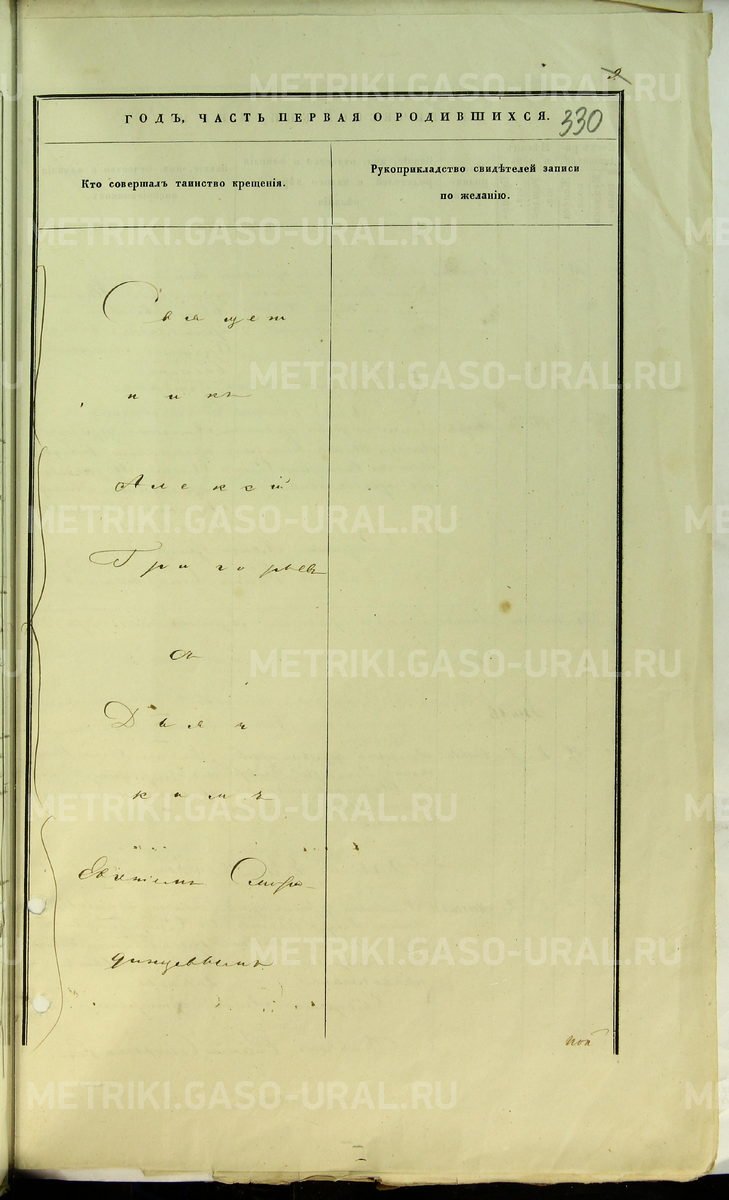 ГОДЪ, ЧАСТЬ ПЕРВАЯ О РОДИВШИХСЯ.
330
Кто совершалъ таинство крещенія.
Рукоприкладство свидѣтелей записи
по желанію.
Священ
никъ
Алексѣй
Григорьев
съ
Дьяч
комъ
METRIKI.GASO-URAL.RU